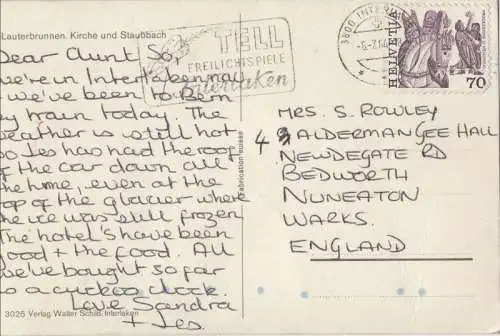 Lauterbrunnen. Kirche und Staubbach
Dear Aunt So,
we're in Interlaken now
+ we've been to Bern
by train today. The
weather is still hot
so Les has had the roof
of the car down all
the time, even at the
top of the glacier where
the ice was still frozen
The hotel's have been
good + the food. All
we've bought so far
is a cuckoo clock.
Love Sandra
+ Les.
3025 Verlag Walter Schild, Interlaken
TELL
FREILICHTSPIELE
Interlaken
Fabrication suisse
3800 INTERL
HELVETIA
70
MRS. S. ROWLEY
4 ALDERMAN GEE HALL
NEWDEGATE RD
BEDWORTH
NUNEATON
WARKS.
ENGLAND